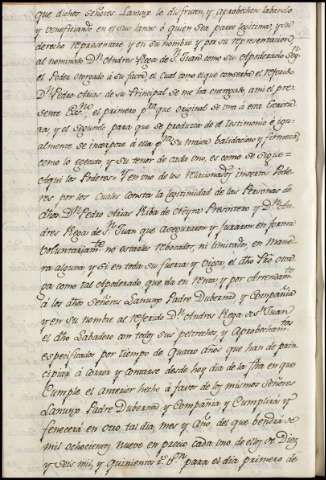 que dichos Señores Lanuxo le disfruten, y aprobechen labrando
y beneficiando en el sus lanas ó quien sea parte legitima, y su
derecho represente y en su nombre y por su representacion
al nominado Dn Andres Rega de Sn Juan como su Apoderado Sn
el Poder otorgado à su favor el cual como el que concretó el referido
Dn Pedro Arias de su Principal se me ha entregado, à mi el pre-
sente Essno el primero pa que original se una à esta Escritu-
ra, y el segundo para que se produzca de el testimonio è igual-
mente se incorpore à ella pa su mayor balidacion y firmeza
como lo egecuto, y su tenor de cada uno, es como se sigue=
Aqui los Poderes= Y en uso de los relacionados insertos Pode-
res por los cuales consta la legitimidad de las Personas de
dhos Dn Pedro Arias Riba de Neyra Presvitero y Dn An-
dres Rega de Sn Juan que aseguraron y juraron en forma
voluntariamte no estarles rebocados, ni limitados en mane-
ra alguna y si en toda su fuerza y vigor, el dho
ya como tal apoderado que da en Renta, y por Arrendamto
à los dhos Señores Lanuxo Padre Dubernà y Compañia
y en su nombre al referido Dn Andres Rega de Sn Juan
el dho Labadero con todos sus pertrechos, y aprobechamtos
especificados por tiempo de Quatro años que han de prin-
cipiar à correr y contarse desde hoy dia de la fha en que
cumple el anterior hecho à favor de los mismos Señores
Lanuxo Padre Duberna y Compañia y Cumplirà y
fenecerà en otro tal dia, mes y Año, del que bendrà de
mil ochocientos Nueve en precio cada uno de ellos de Diez
y seis mil, y quinientos rs Vn para el dia primero de